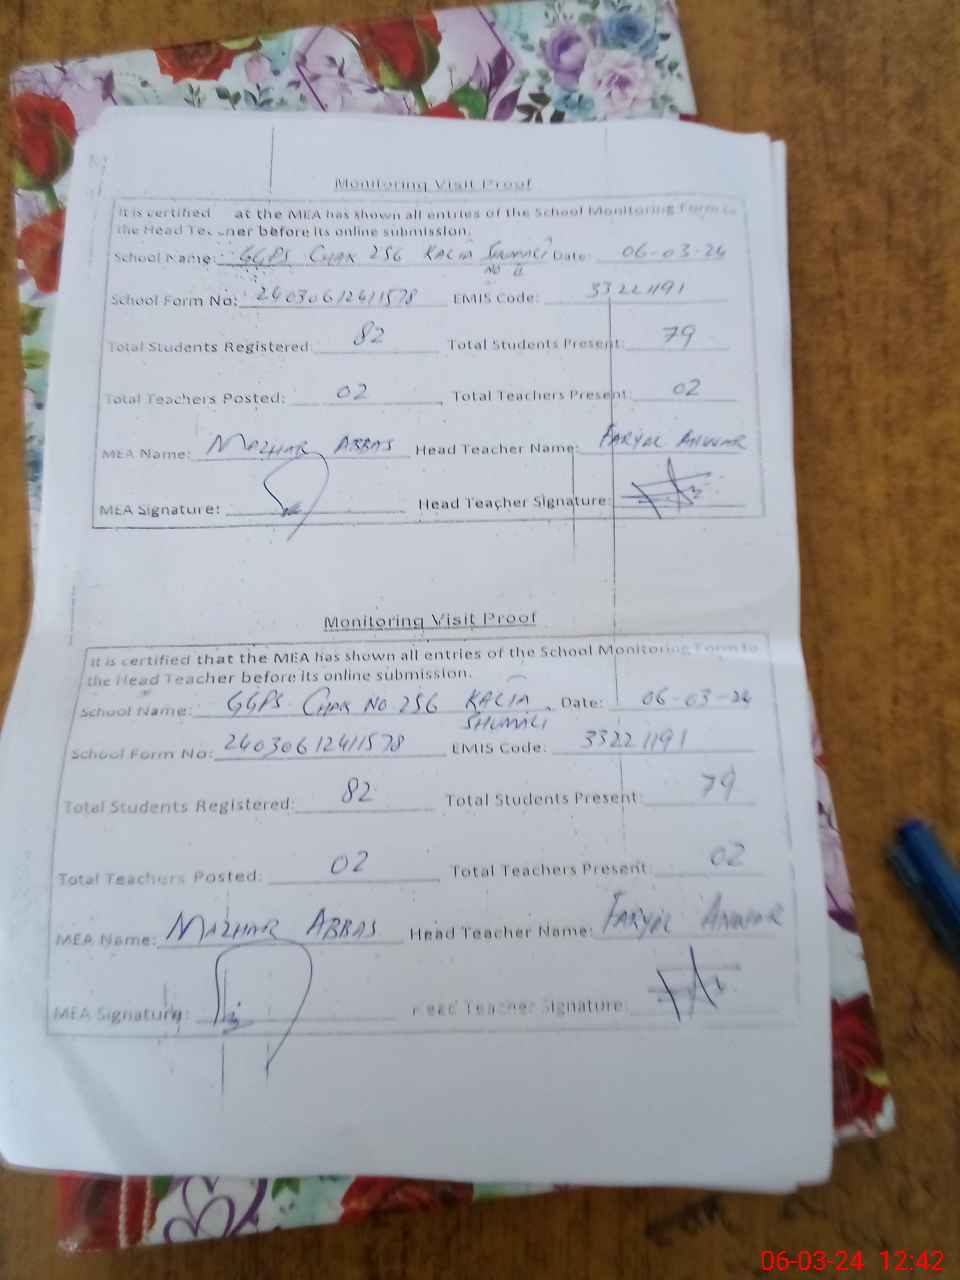 Monitoring Visit Proof
It is certified at the MEA has shown all entries of the School Monitoring Form to
the Head Teacher before its online submission.
School Name: GGPS CHAK 256 KALIA SHUMALI Date: 06-03-24
No II
School Form No: 24030612411578 EMIS Code: 33221191
Total Students Registered: 82 Total Students Present: 79
Total Teachers Posted: 02 Total Teachers Present: 02
MEA Name: MAZHAR ABBAS Head Teacher Name: FARYAL ANWAR
MEA Signature: Head Teacher Signature:
Monitoring Visit Proof
It is certified that the MEA has shown all entries of the School Monitoring Form to
the Head Teacher before its online submission.
School Name: GGPS CHAK NO. 256 KALIA Date: 06-03-24
SHUMALI
School Form No: 24030612411578 EMIS Code: 33221191
Total Students Registered: 82 Total Students Present: 79
Total Teachers Posted: 02 Total Teachers Present: 02
MEA Name: MAZHAR ABBAS Head Teacher Name: FARYAL ANWAR
MEA Signature: Head Teacher Signature:
06-03-24 12:42